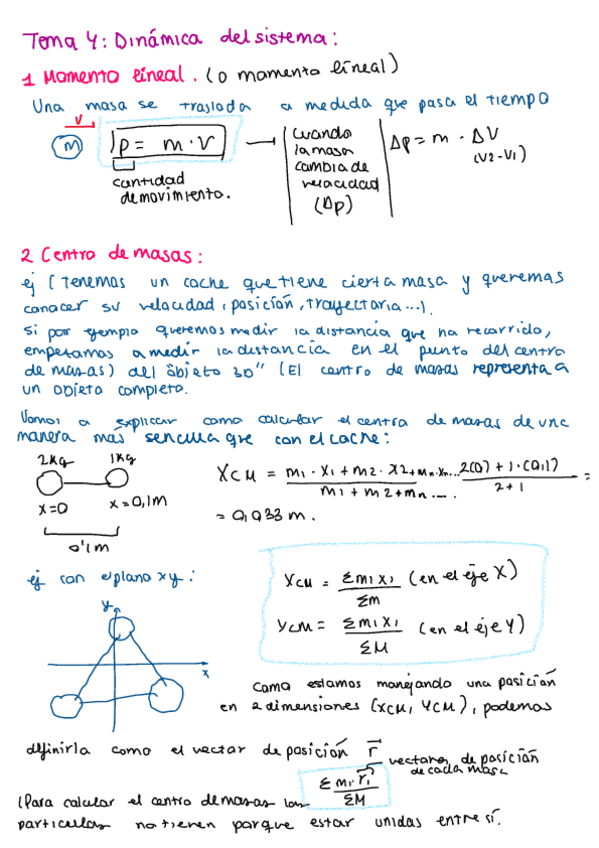 Tema 4: Dinámica del sistema:
1 Momento lineal. (o momento lineal)
Una masa se traslada a medida que pasa el tiempo
v
m
p = m · v
cantidad
de movimiento.
cuando
la masa
cambia de
velocidad
(Δp)
Δp = m · ΔV
(V2-V1)
2 Centro de masas:
ej (Tenemos un coche que tiene cierta masa y queremos
conocer su velocidad, posición, trayectoria...).
Si por ejemplo queremos medir la distancia que ha recorrido,
empezamos a medir la distancia en el punto del centro
de masas) del "objeto 3D" (El centro de masas representa a
un objeto completo.
Vamos a explicar como calcular el centro de masas de una
manera más sencilla que con el coche:
2Kg 1Kg
x=0 x=0,1m
0,1m
XCM = m1 · x1 + m2 · x2 + mn · xn... / m1 + m2 + mn .... 2(0) + 1 · (0,1) / 2+1 =
= 0,033 m.
ej con el plano xy:
y
x
XCM = Σm1 x1 / Σm (en el eje X)
YCM = Σm1 x1 / ΣM (en el eje Y)
Como estamos manejando una posición
en 2 dimensiones (XCM, YCM), podemos
definirla como el vector de posición r⃗
Σ m1 · r⃗1 / ΣM
vectores de posición
de cada masa
(Para calcular el centro de masas las
particulas no tienen porque estar unidas entre sí.